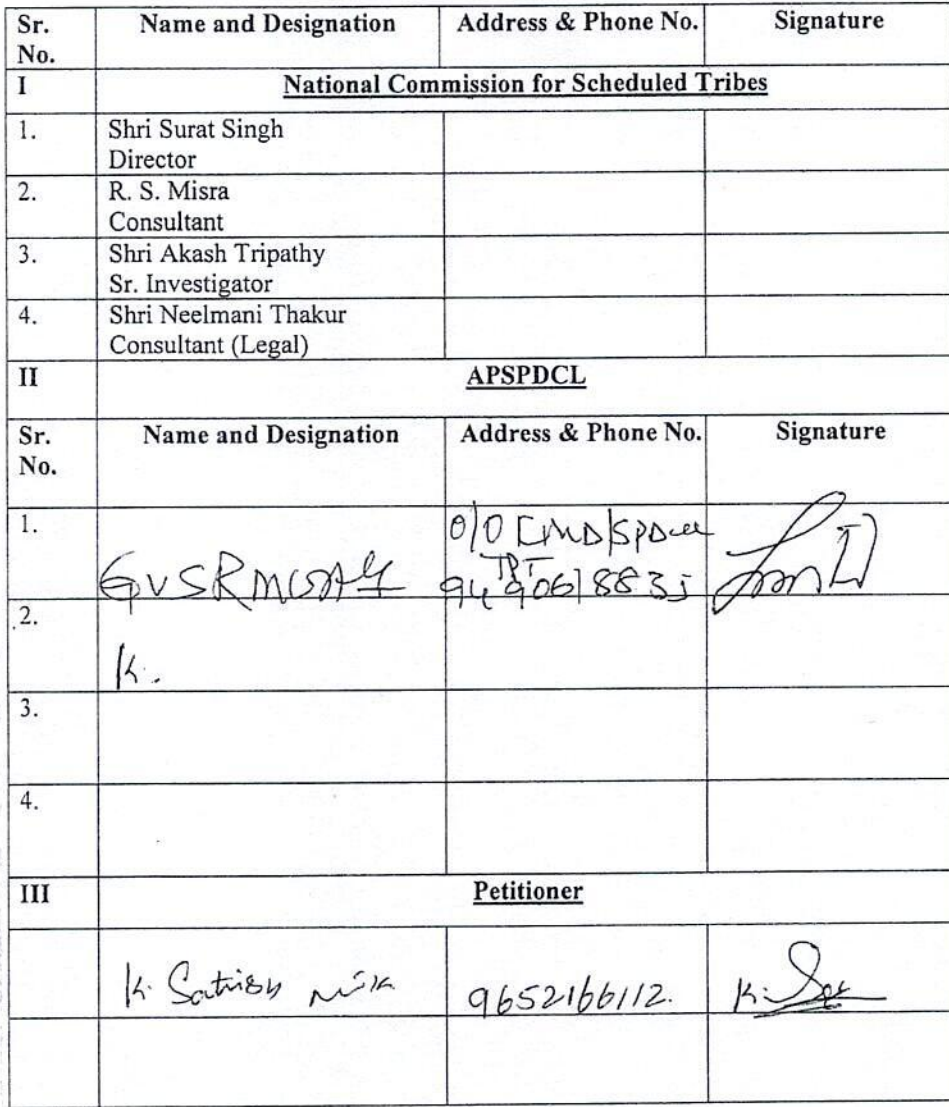 Sr. No. Name and Designation Address & Phone No. Signature
I National Commission for Scheduled Tribes
1. Shri Surat Singh
Director
2. R. S. Misra
Consultant
3. Shri Akash Tripathy
Sr. Investigator
4. Shri Neelmani Thakur
Consultant (Legal)
II APSPDCL
Sr. No. Name and Designation Address & Phone No. Signature
1.
O/O CMD/SPDCL
TPT
GVSR 9490618835
2.
K.
3.
4.
III Petitioner
K. Satrish 9652166112. K.